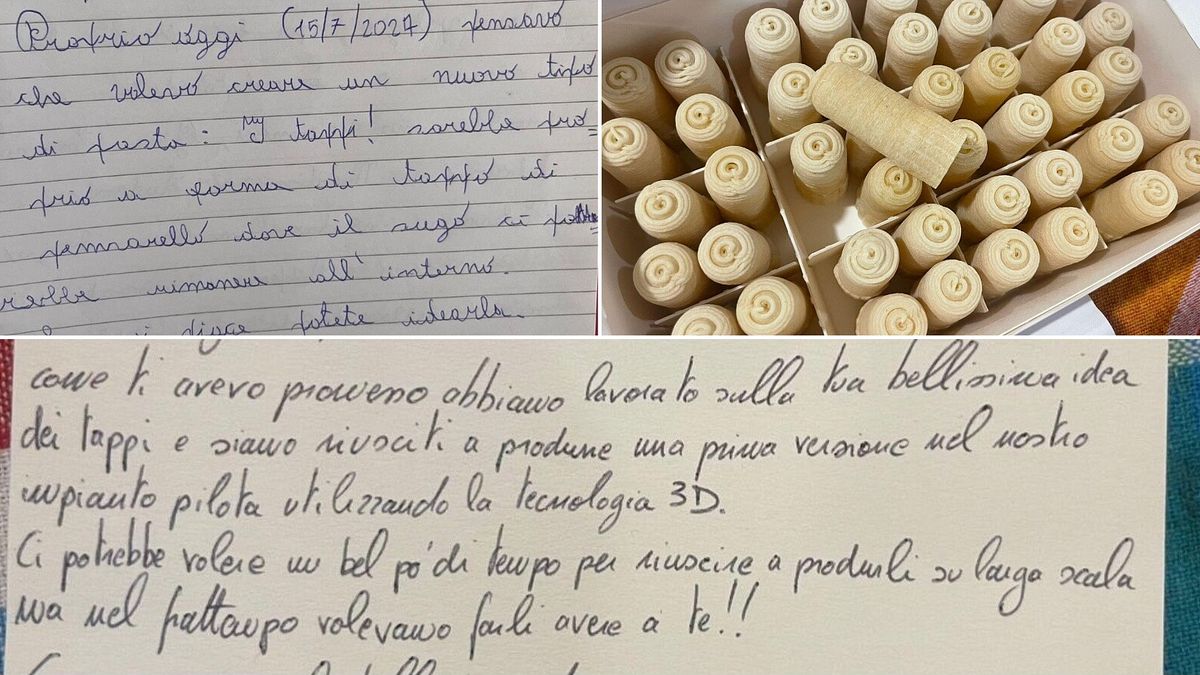 Proprio oggi (15/7/2024) pensavo
che volevo creare un nuovo tipo
di pasta: "I tappi! sarebbe pro=
prio a forma di tappo di
pennarello dove il sugo ci pot=
rebbe rimanere all'interno.
piace potete idearla.
come ti avevo promesso abbiamo lavorato sulla tua bellissima idea
dei tappi e siamo riusciti a produrre una prima versione nel nostro
impianto pilota utilizzando la tecnologia 3D.
Ci potrebbe volere un bel po' di tempo per riuscire a produrli su larga scala
ma nel frattempo volevamo farli avere a te!!